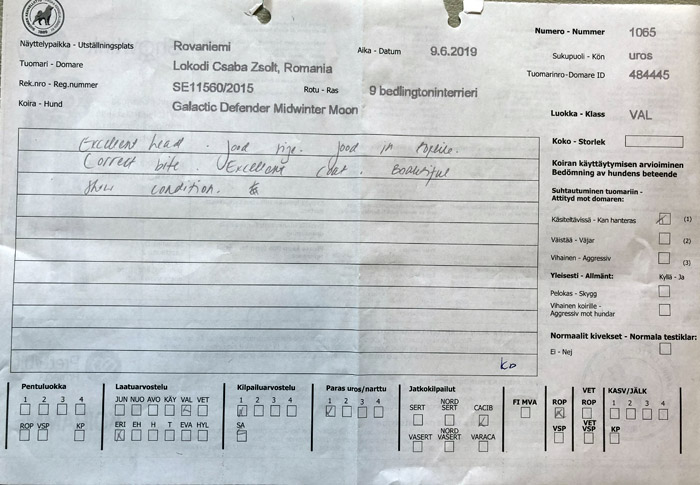 Numero - Nummer 1065
Näyttelypaikka - Utställningsplats Rovaniemi Aika - Datum 9.6.2019
Sukupuoli - Kön uros
Tuomari - Domare Lokodi Csaba Zsolt, Romania
Tuomarinro-Domare ID 484445
Rek.nro - Reg.nummer SE11560/2015 Rotu - Ras 9 bedlingtoninterrieri
Koira - Hund Galactic Defender Midwinter Moon
Luokka - Klass VAL
Koko - Storlek
Excellent head. Good size. Good in topline.
Correct bite. Excellent coat. Beautiful
show condition.
Koiran käyttäytymisen arvioiminen
Bedömning av hundens beteende
Suhtautuminen tuomariin -
Attityd mot domaren:
Käsiteltävissä - Kan hanteras (1)
Väistää - Väjar (2)
Vihainen - Aggressiv (3)
Yleisesti - Allmänt: Kyllä - Ja
Pelokas - Skygg
Vihainen koirille -
Aggressiv mot hundar
Normaalit kivekset - Normala testiklar:
Ei - Nej
Pentuluokka
1 2 3 4
ROP VSP KP
Laatuarvostelu
JUN NUO AVO KÄY VAL VET
ERI EH H T EVA HYL
Kilpailuarvostelu
1 2 3 4
SA
Paras uros/narttu
1 2 3 4
Jatkokilpailut
SERT NORD SERT CACIB
VASERT NORD VASERT VARACA
FI MVA
ROP
VSP
VET ROP
VET VSP
KASV/JÄLK
1 2 3 4
KP